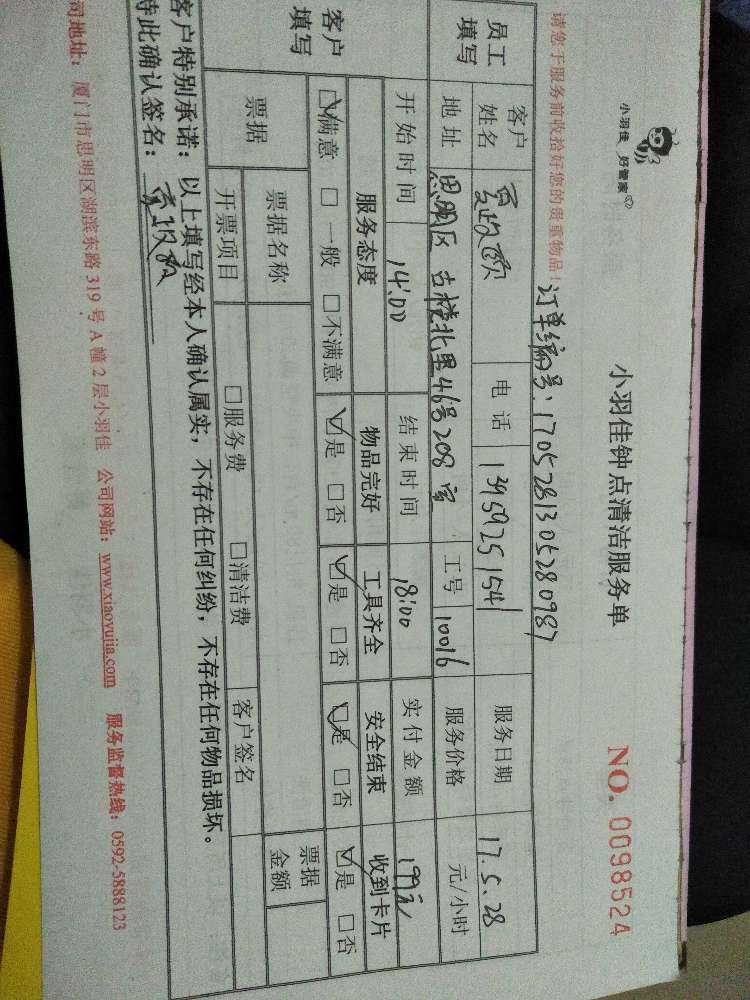 小羽佳 好管家
小羽佳钟点清洁服务单
NO. 0098524
请您于服务前收拾好您的贵重物品!
订单编号:1705281305280987
员工填写
客户姓名 电话 13959251541 服务日期 17.5.28
地址 思明区古楼北里46号208室 工号 10016 服务价格 元/小时
开始时间 14:00 结束时间 18:00 实付金额 199元
客户填写
服务态度 物品完好 工具齐全 安全结束 收到卡片
☑满意 □一般 □不满意 ☑是 □否 ☑是 □否 ☑是 □否 ☑是 □否
票据 票据名称 票据金额
开票项目 □服务费 □清洁费 客户签名
客户特别承诺:以上填写经本人确认属实,不存在任何纠纷,不存在任何物品损坏。
特此确认签名:
司地址:厦门市思明区湖滨东路319号A幢2层小羽佳 公司网站:www.xiaoyujia.com 服务监督热线:0592-5888123